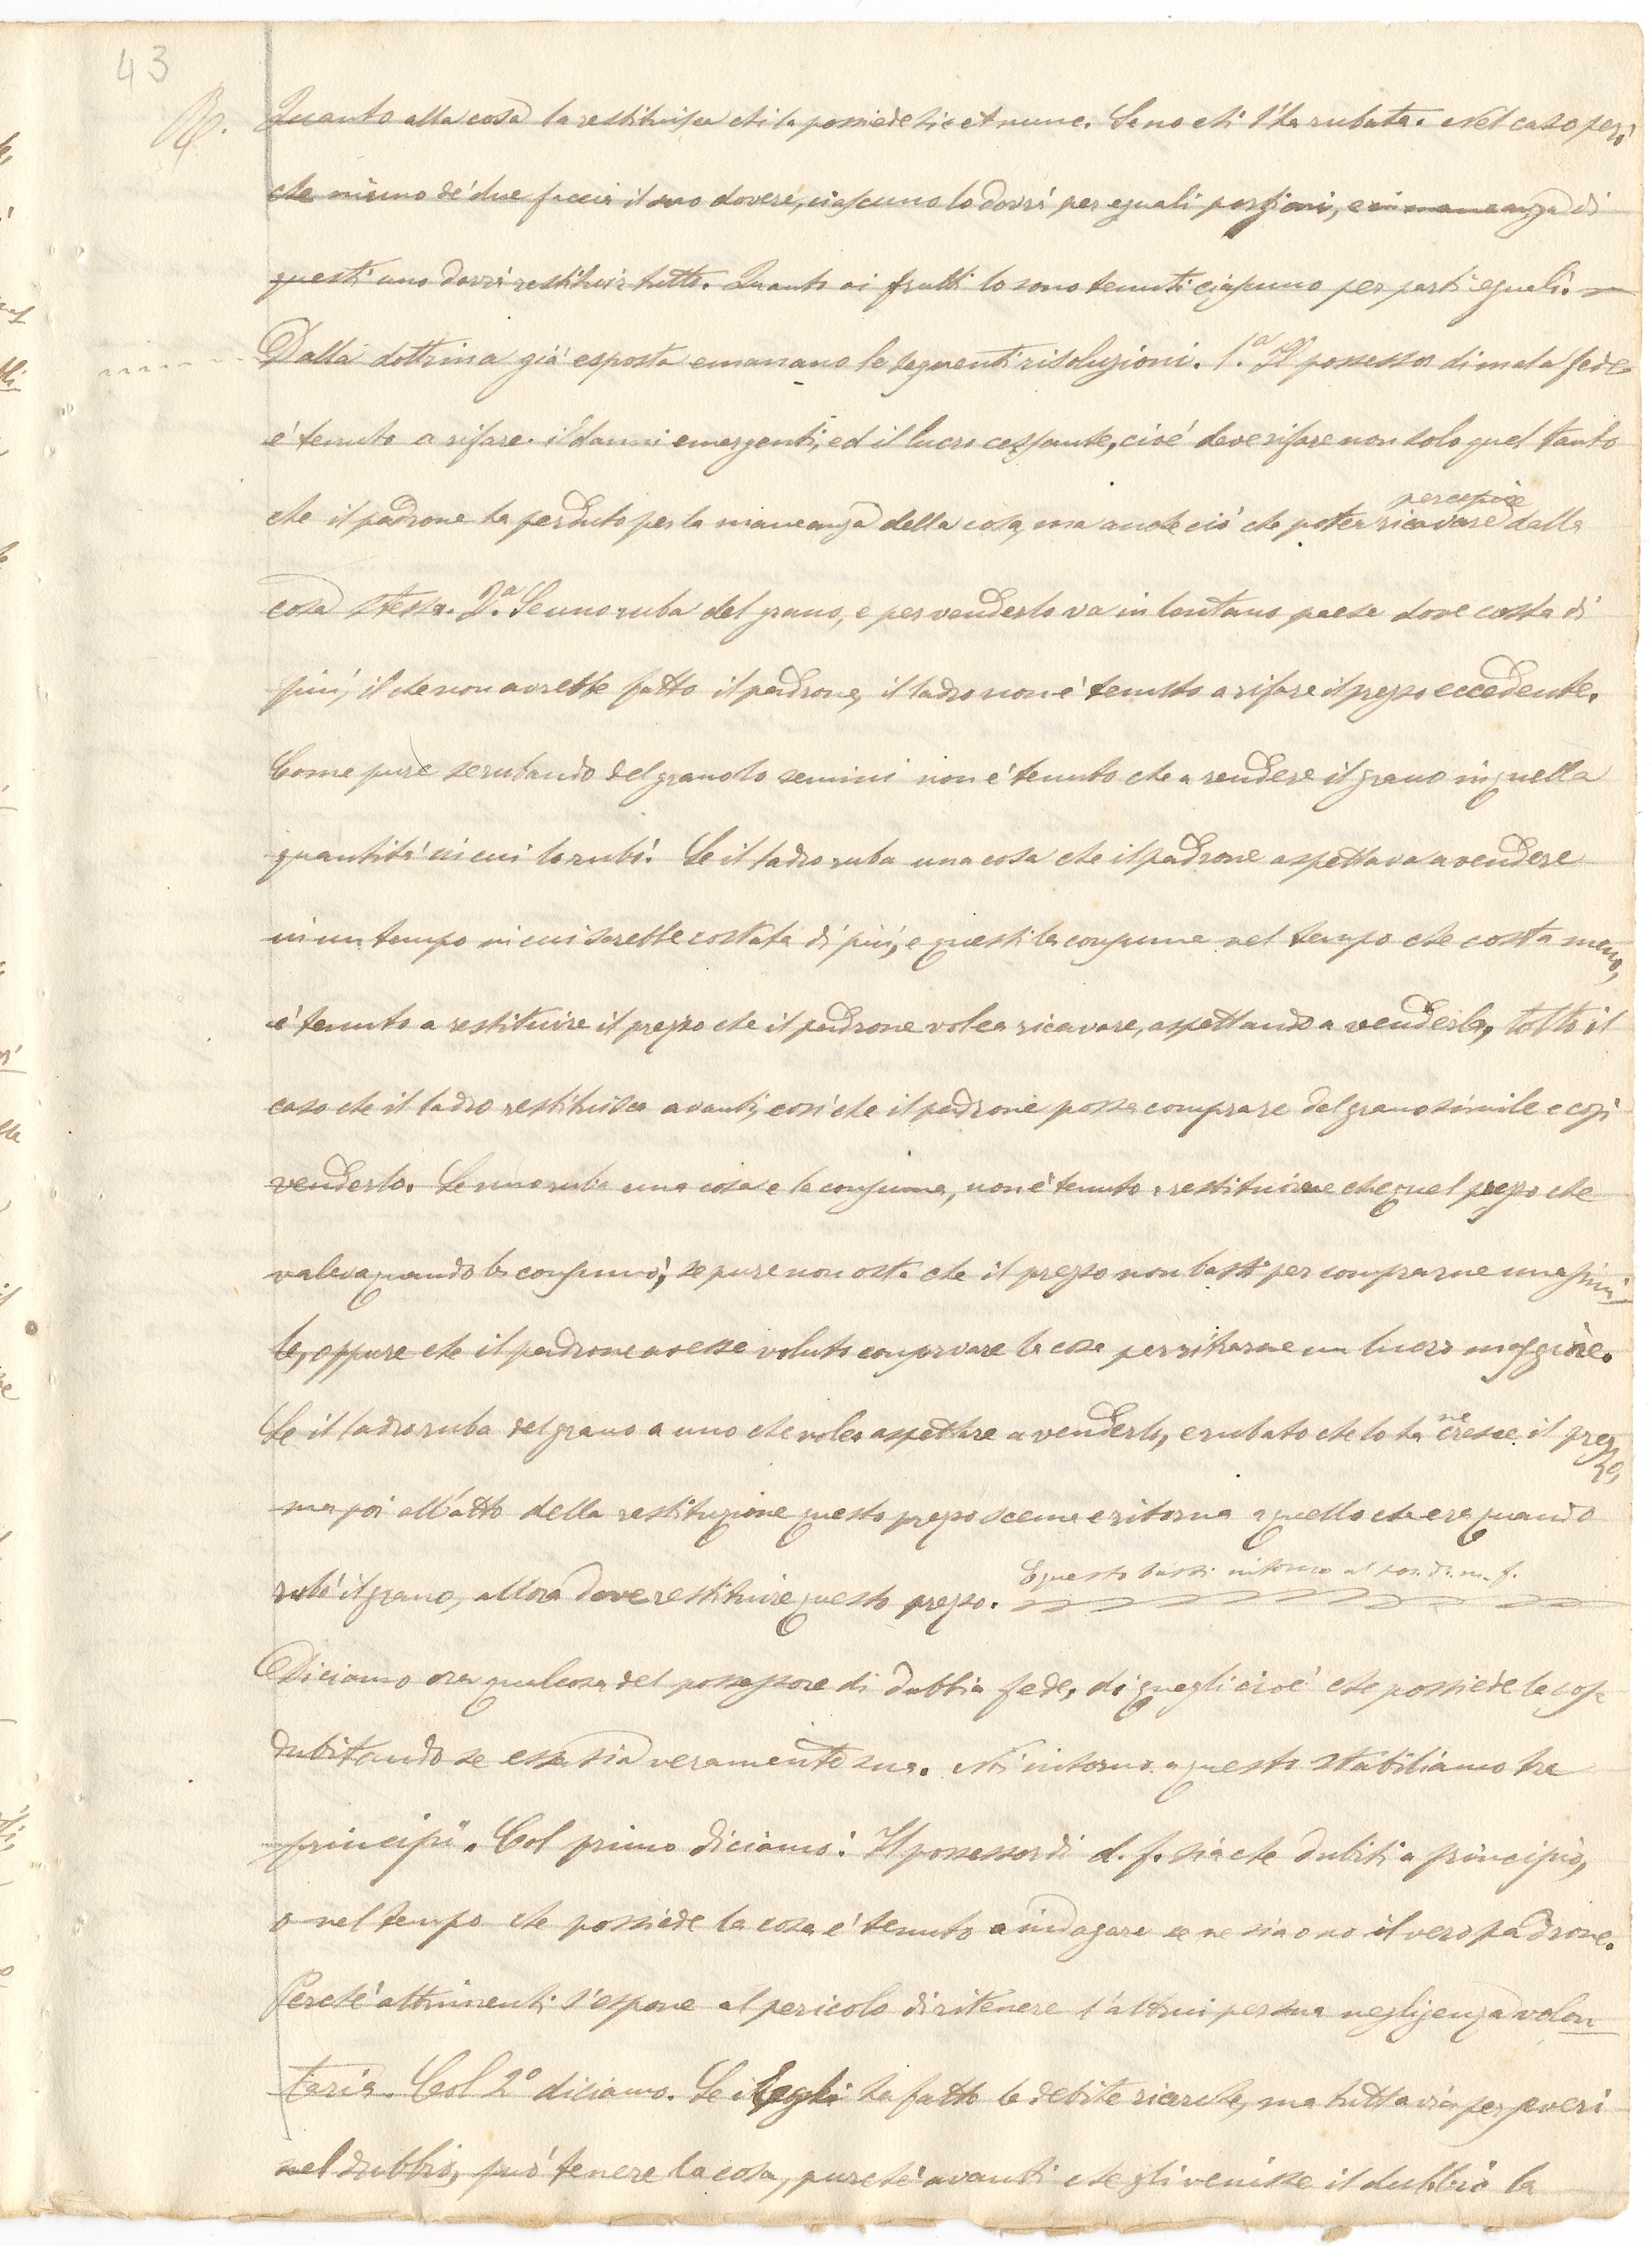 43
R. Quanto alla cosa la restituisca chi la possiede hic et nunc. Se no chi l'ha rubata. Nel caso però
che niuno de' due faccia il suo dovere, ciascuno lo dovrà per eguali porzioni, e in mancanza di
questi uno dovrà restituir tutto. Quanto ai frutti lo sono tenuti ciascuno per parti eguali.
Dalla dottrina già esposta emanano le seguenti risoluzioni. 1.a Il possessor di mala fede
è tenuto a rifare i danni emergenti, ed il lucro cessante, cioè deve rifare non solo quel tanto
che il padrone ha perduto per la mancanza della cosa, ma anche ciò che potea ricavare dalla
percepire
cosa stessa. 2.a Se uno ruba del grano, e per venderlo va in lontano paese dove costa di
più, il che non avrebbe fatto il padrone, il ladro non è tenuto a rifare il prezzo eccedente.
Come pure se rubando del grano lo semini non è tenuto che a rendere il grano in quella
quantità in cui lo rubò. Se il ladro ruba una cosa che il padrone aspettava a vendere
in un tempo in cui sarebbe costata di più, e questi la consuma nel tempo che costa meno,
è tenuto a restituire il prezzo che il padrone volea ricavare, aspettando a venderla, tolto il
caso che il ladro restituisca avanti, così che il padrone possa comprare del grano simile e così
venderlo. Se uno ruba una cosa e la consuma, non è tenuto a restituirne che quel prezzo che
valeva quando la consumò, se pure non osta che il prezzo non basti per comprarne una simi-
le, oppure che il padrone avesse voluto conservare la cosa per ritrarne un lucro maggiore.
Se il ladro ruba del grano a uno che volea aspettare a venderlo, e rubato che lo ha ne cresce il prezzo,
ma poi all'atto della restituzione questo prezzo scema e ritorna a quello che era quando
rubò il grano, allora deve restituire questo prezzo. E questo basti intorno al pos. di m. f.
Diciamo ora qualcosa del possessore di dubbia fede, di quegli cioè che possiede la cosa
dubitando se essa sia veramente sua. Noi intorno a questo stabiliamo tre
principii. Col primo diciamo: Il possessor di d. f. sia che dubiti a principio,
o nel tempo che possiede la cosa è tenuto a indagare se ne sia o no il vero padrone.
Perchè altrimenti s'espone al pericolo di ritenere l'altrui per sua negligenza volon
taria. Col 2º diciamo. Se egli ha fatto le debite ricerche, ma tuttavia per severi
nel dubbio, può tenere la cosa, purchè avanti che gli venisse il dubbio la